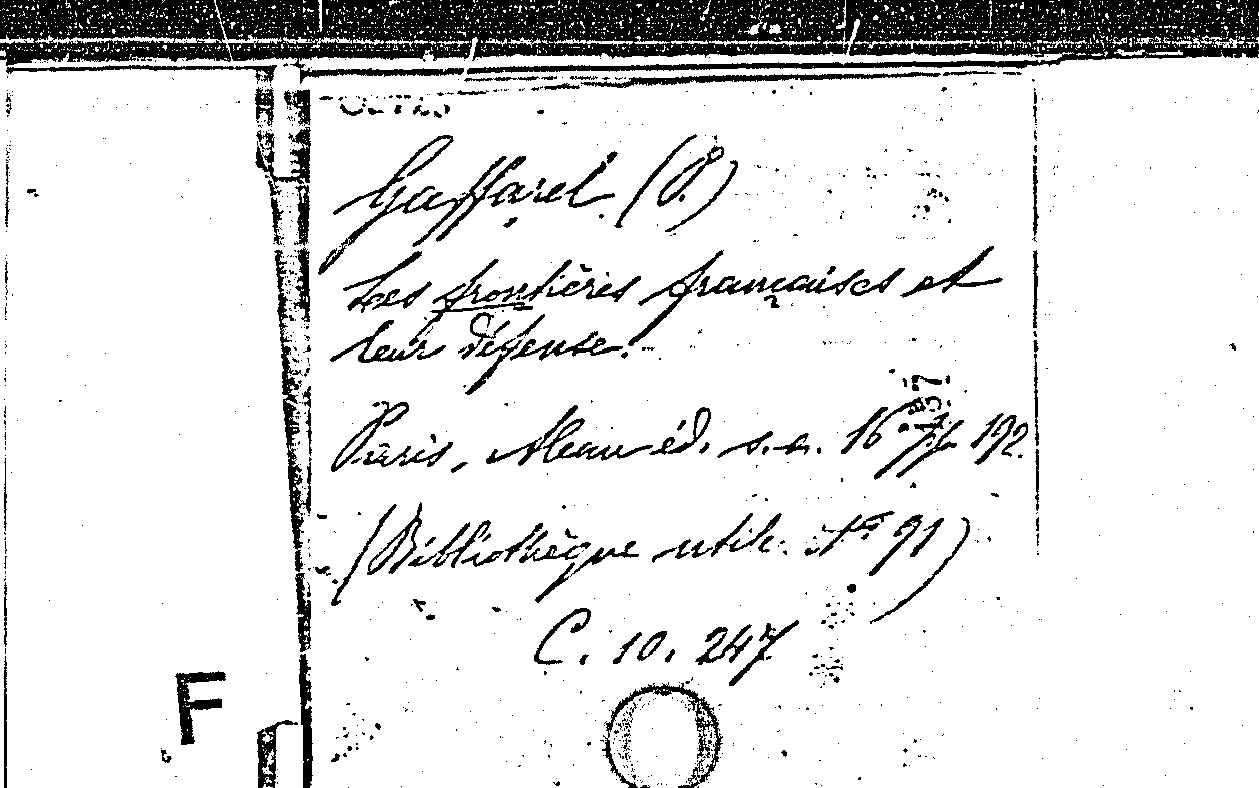 Gaffarel (P.)
Les frontières françaises et
leur défense.
Paris, Alcan éd. s.a. 16° 192
(Bibliothèque utile. 91)
C. 10. 247
F